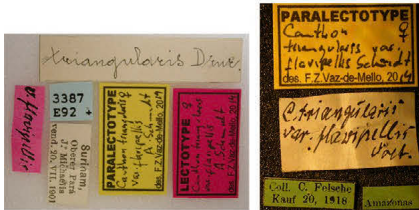 triangularis Drur.
v. flavipellis
3387
E92 +
Surinam,
Oberer Pará
J. Michaelis
vend. 20. VII. 1901
PARALECTOTYPE
Canthon triangularis ♀
var flavipellis
A. Schmidt
des. F.Z.Vaz-de-Mello, 2014
LECTOTYPE ♀
Canthon triangularis
var flavipellis
A. Schmidt
des. F.Z.Vaz-de-Mello, 2014
PARALECTOTYPE
Canthon ♀
triangularis var.
flavipellis Schmidt
des. F.Z.Vaz-de-Mello, 2014
C. triangularis
var. flavipellis
Coll. C. Felsche
Kauf 20, 1918
Amazonas